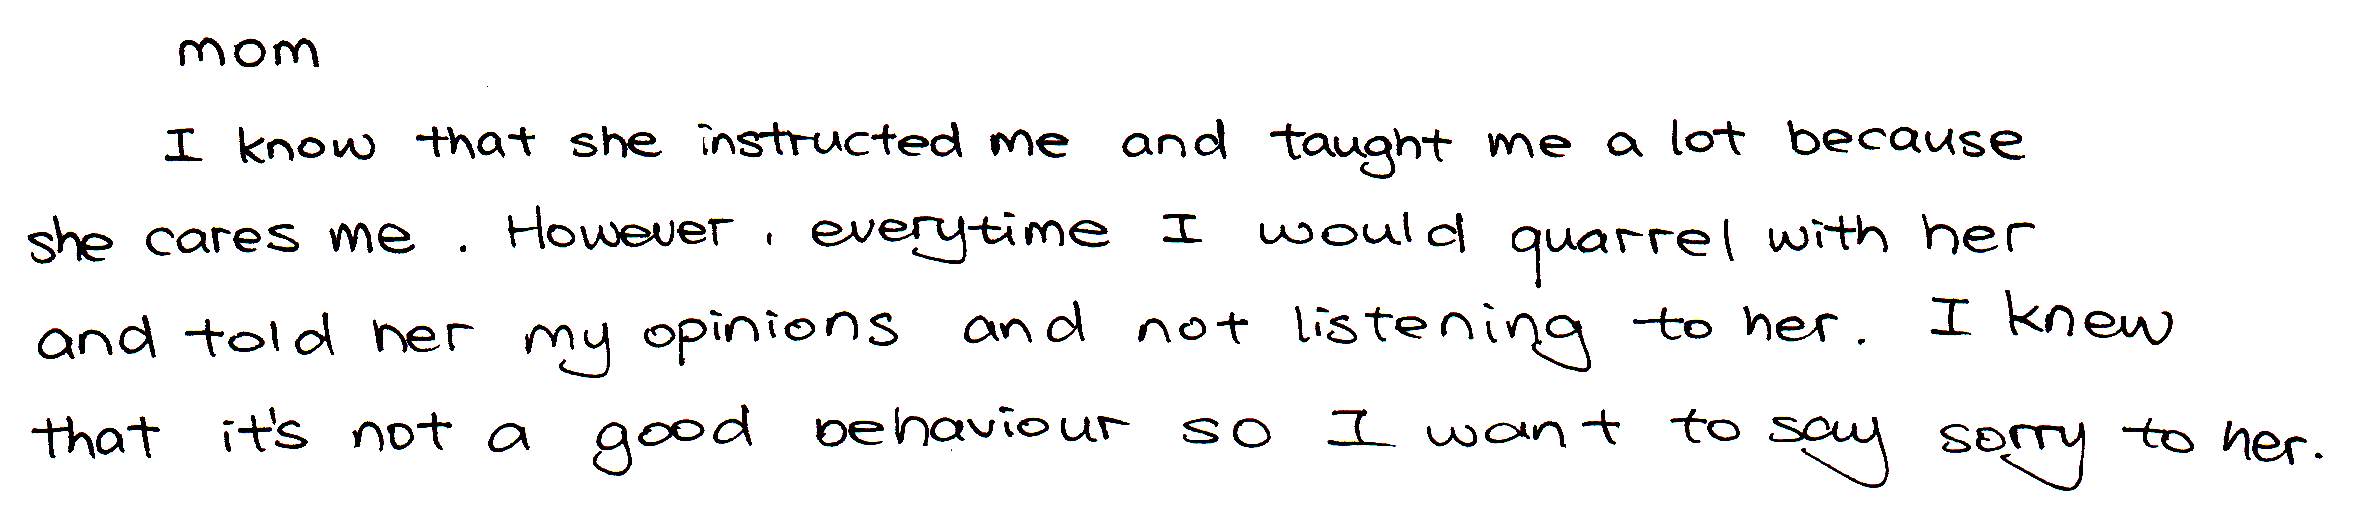 mom
I know that she instructed me and taught me a lot because
she cares me . However , everytime I would quarrel with her
and told her my opinions and not listening to her. I knew
that it's not a good behaviour so I want to say sorry to her.